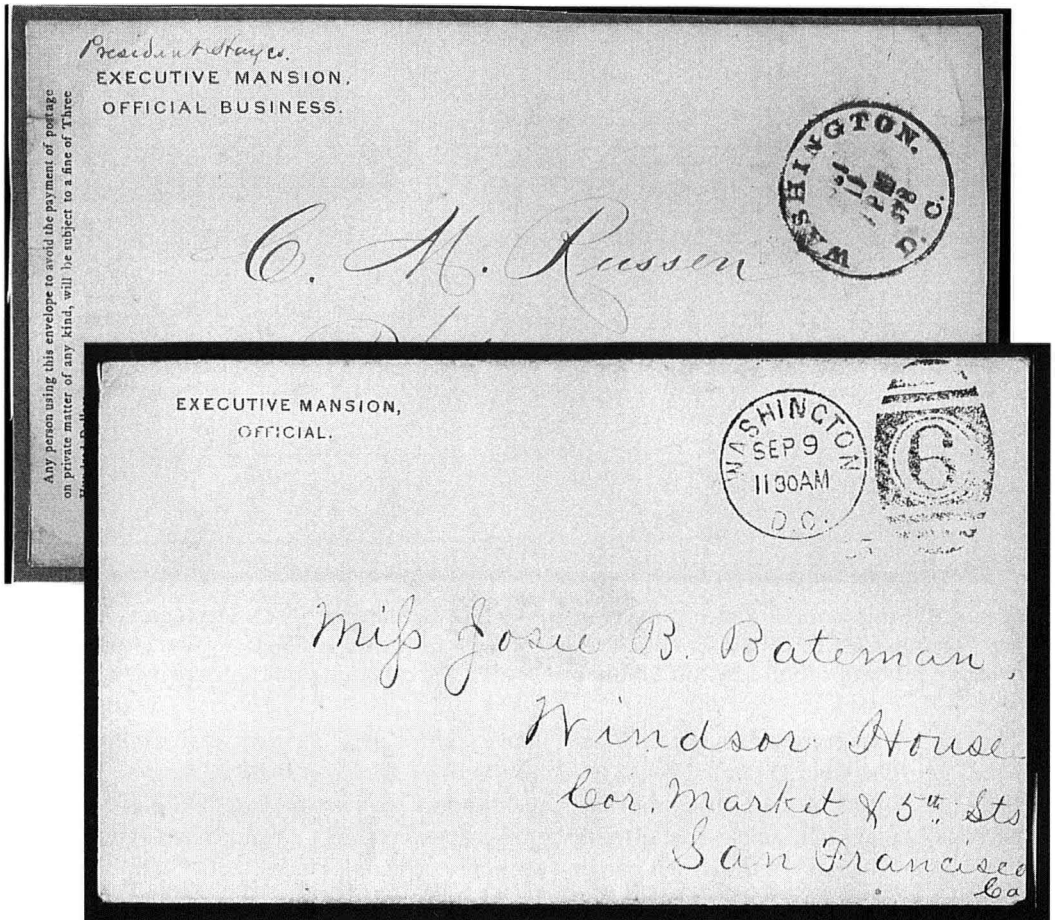 President Hayes.
EXECUTIVE MANSION,
OFFICIAL BUSINESS.
Any person using this envelope to avoid the payment of postage
on private matter of any kind, will be subject to a fine of Three
WASHINGTON.
D. C.
C. M. Russen
EXECUTIVE MANSION,
OFFICIAL.
WASHINGTON
SEP 9
1130AM
D.C.
6
Miſs Josie B. Bateman,
Windsor House
Cor. Market & 5th Sts
San Francisco
Ca